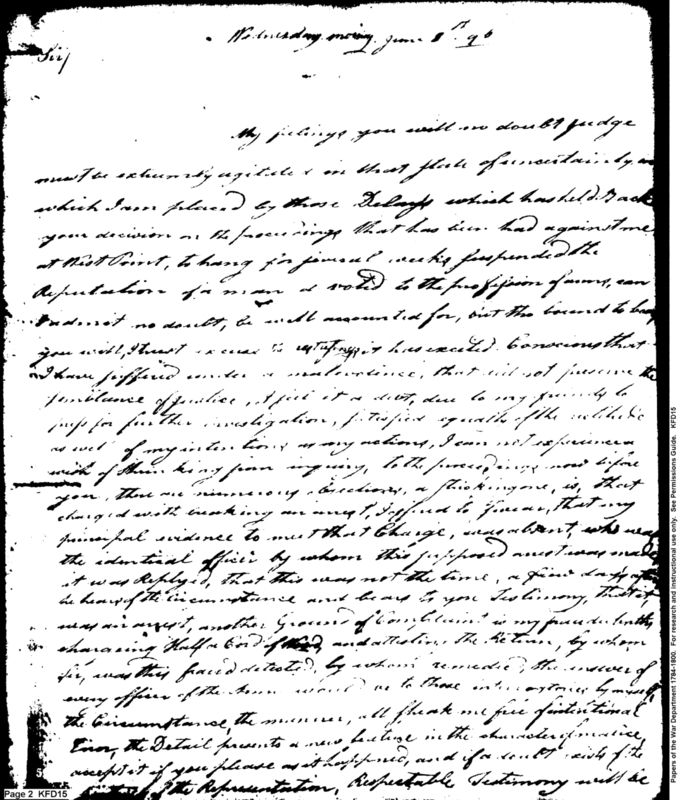 Wednesday morng. June 1st 96
Sir/
My feelings you will no doubt Judge
must be extremely agitated in that State of uncertainty, in
which I am placed by those Delays which has held Back
your decision on the proceedings that has been had against me
at West Point, to hang for several weeks suspended the
Reputation of a man d voted to the profession of arms, can
I admit no doubt, be well accounted for, but tho bound to
you will, I trust excuse it has excited. Conscious that
I have suffered under a malevolence, that did not preserve the
semblance of Justice, I feel it a debt, due to my friends to
press for further investigation, satisfied equally of the rectitude
as well of my intentions as my actions, I can not experience a
wish of shrinking from inquiry, to the proceedings now before
you, there are numerous objections, a striking one, is, that
charged with breaking an arrest, I offered to swear, that my
principal evidence to meet that Charge, was absent, who was
the identical officer by whom this supposed arrest was made
it was Replyed, that this was not the time, a few days after
he hears of the circumstance and bears to you Testimony, that it
was an arrest, another Ground of Complaint is my
charging Half a Cord of Wood, and attesting the Return, by whom
Sir, was this fraud detected, by whom remedied, the answer of
every officer of the would be to those interrogatories by myself,
the Circumstance, the manner, all speak me free of intentional
Error, the Detail presents a new feature in the character of malice,
accept it if you please as it happened, and if a doubt exists of the
of the Representation, Respectable Testimony will be
Page 2 KFD15
Papers of the War Department 1784-1800. For research and instructional use only. See Permissions Guide. KFD15